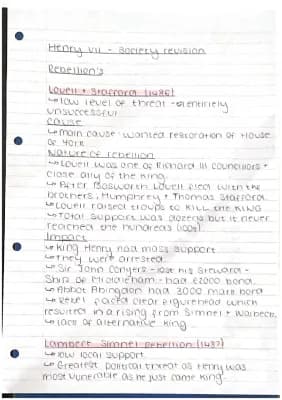 Henry VII - Society revision
Rebellion's
Lovell + Stafford (1486)
↳ low level of threat - entirely
unsuccessful
cause
↳ main cause wanted restoration of House
of York
Nature of rebellion
↳ Lovell was one of Richard III councillors +
close ally of the king.
↳ After Bosworth Lovell fled with the
brothers, Humphrey + Thomas Stafford.
↳ Lovell raised troups to KILL the KING
↳ Total support was dozens but it never
reached the hundreds (100s).
Impact
↳ King Henry had mass support
↳ they were arrested.
↳ Sir John Conyers - lost his Steward-
ship of Middleham - had £2000 bond.
↳ Abbot Abingdon had 3000 mark bond
↳ Rebel faced clear figurehead which
resulted in a rising from Simnel + Warbeck.
↳ lack of alternative king
Lambert Simnel Rebellion (1487)
↳ low local support
↳ Greatest political threat as Henry was
most vunerable as he just came king.